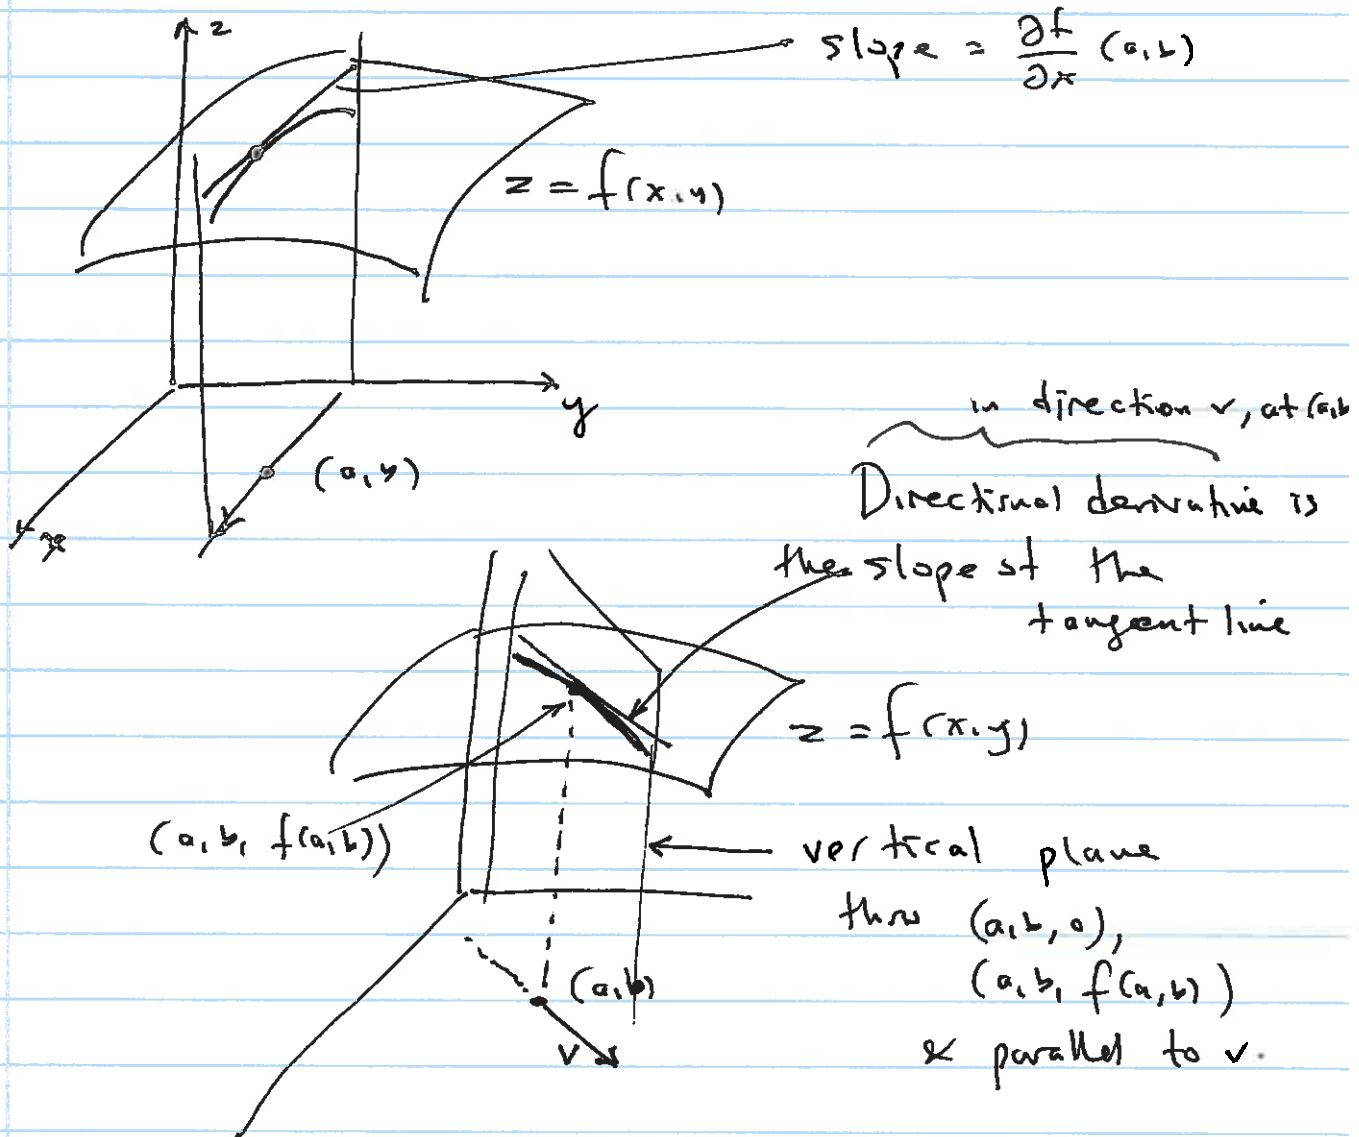 z
slope = ∂f/∂x (a,b)
z = f(x,y)
y
(a,b)
x
in direction v, at (a,b
Directional derivative is
the slope of the
tangent line
z = f(x,y)
(a, b, f(a,b))
vertical plane
thru (a,b,0),
(a,b)
(a, b, f(a,b))
v
& parallel to v.